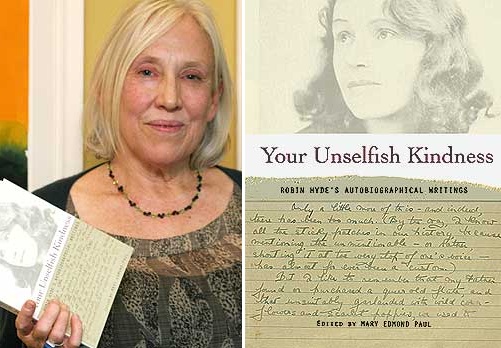 Your Unselfish Kindness
Your Unselfish Kindness
ROBIN HYDE'S AUTOBIOGRAPHICAL WRITINGS
Only a little more of this - and indeed
there has been too much. (By the way, I
all the sticky patches in our history because
mentioning the unmentionable - or rather
shouting it at the very top of one's voice
has about for ever been a custom)
But I like to remember that my Father
found or purchased a queer old Hute and
that unsuitably garlanded with wild corn-
flowers and scarlet poppies, we used to
EDITED BY MARY EDMOND PAUL